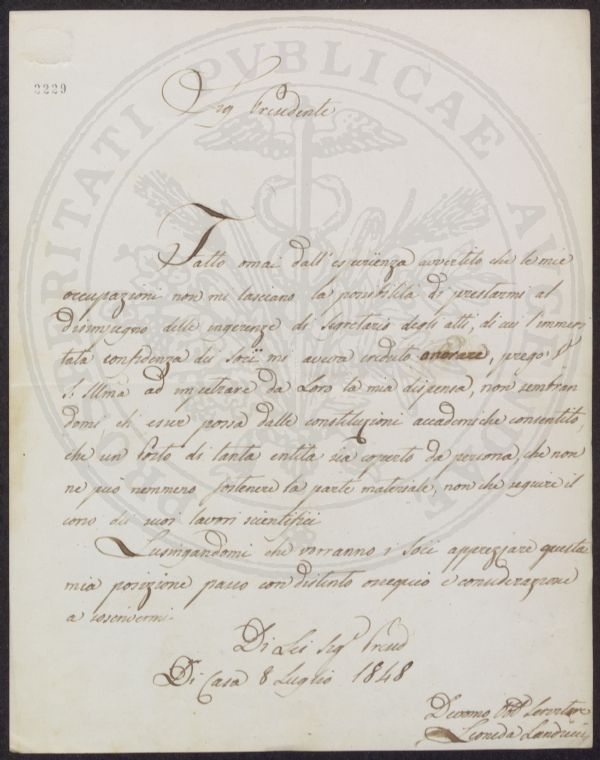 2229
Sig Presidente
Fatto omai dall'esperienza avvertito che le mie
occupazioni non mi lasciano la possibilità di prestarmi al
disimpegno delle ingerenze di Segretario degli atti, di cui l'immeri
tata confidenza dei Socii mi aveva creduto onorare, prego V
S. Illma ad impetrare da Loro la mia dispensa, non sembran
domi ch esser possa dalle constituzioni accademiche consentito,
che un Posto di tanta entità sia coperto da persona, che non
ne può nemmeno sostenere la parte materiale, non che seguire il
corso dei suoi lavori scientifici
Lusingandomi che vorranno i Soci apprezzare questa
mia posizione passo con distinto ossequio e considerazione
a soscrivermi.
Di Lei Sigr Presid
Di Casa 8 Luglio 1848
Devomo Obb Servitore
Leonida Landucci
PROSPERITATI PVBLICAE AVGENDAE